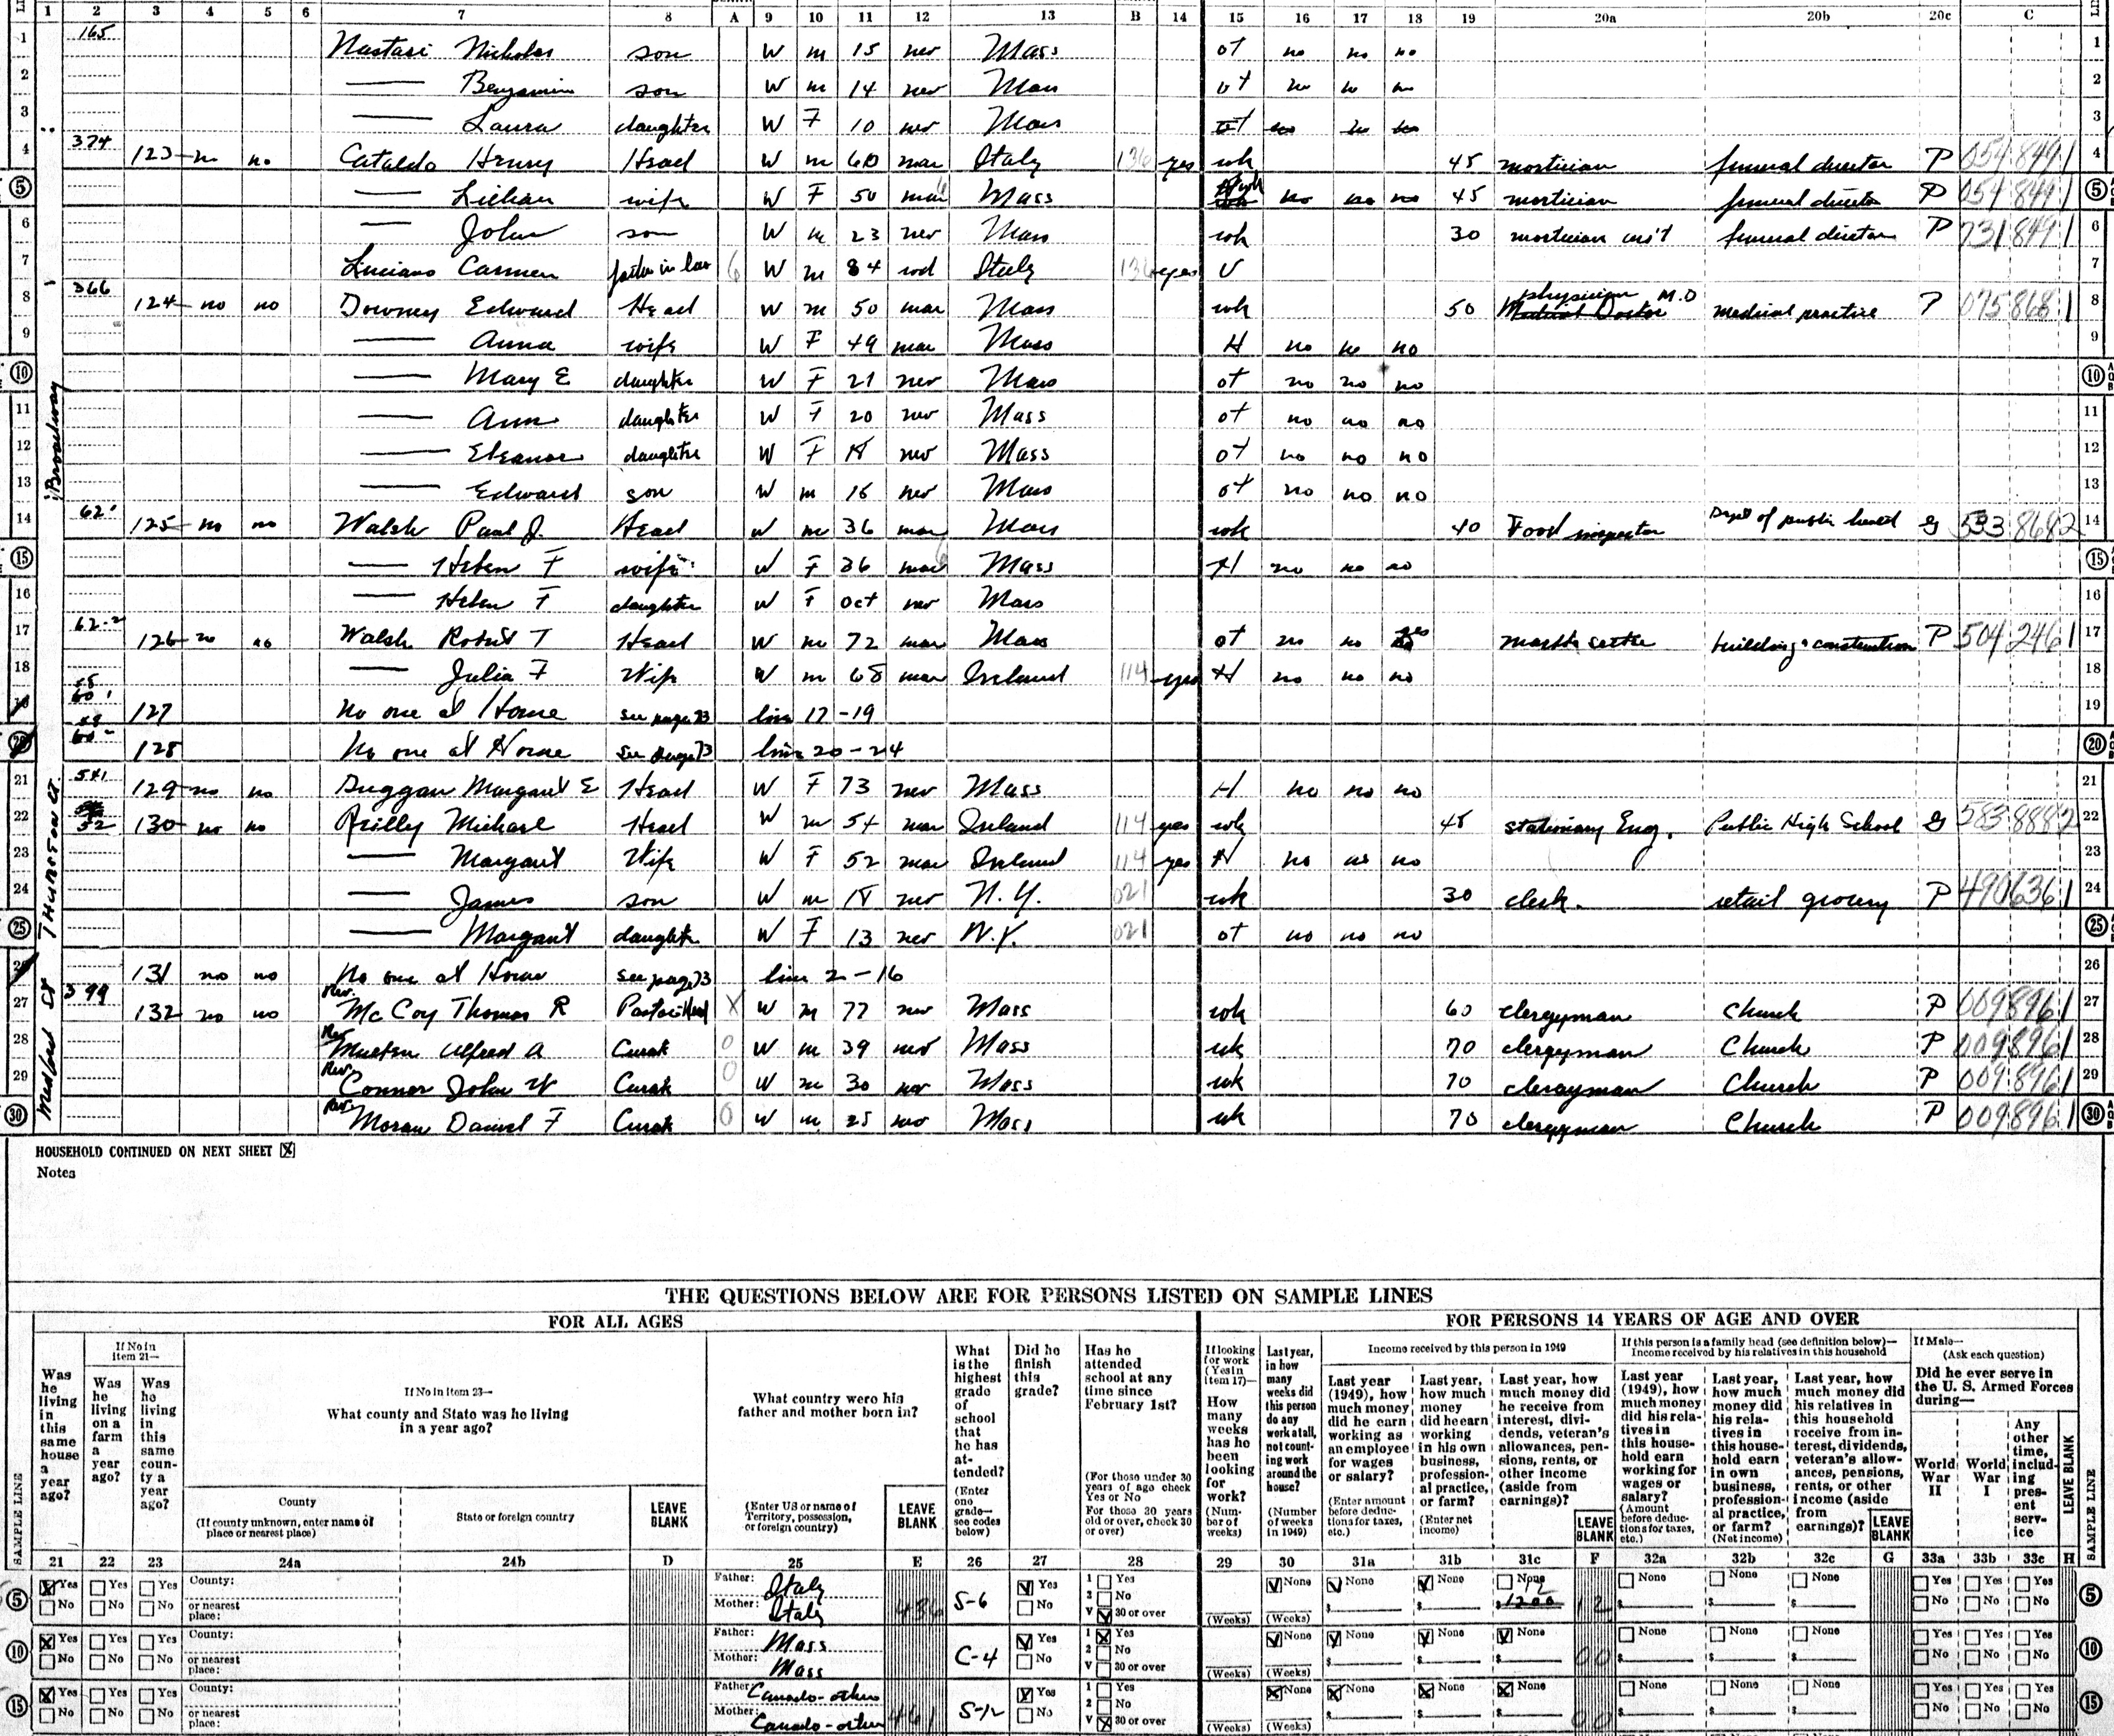 1 2 3 4 5 6 7 8 A 9 10 11 12 13 B 14 15 16 17 18 19 20a 20b 20c C
1 165 Nastasi Nicholas son W m 15 nev Mass ot no no no 1
2 — Benjamin son W m 14 nev Mass ot no no no 2
3 — Laura daughter W F 10 nev Mass ot no no no 3
4 374 123 no no Cataldo Henry Head W m 60 mar Italy 136 yes wk 45 mortician funeral director P 054 849 1 4
5 — Lillian wife W F 50 mar Mass wk no no no 45 mortician funeral director P 054 849 1 5
6 — John son W m 23 nev Mass wk 30 mortician ass't funeral director P 731 849 1 6
7 Luciano Carmen father in law 6 W m 84 wd Italy 136 yes U 7
8 366 124 no no Downey Edward Head W m 50 mar Mass wk 50 physician M.D Medical Doctor medical practice P 075 868 1 8
9 — Anna wife W F 49 mar Mass H no no no 9
Broadway
10 — Mary E daughter W F 21 nev Mass ot no no no 10
11 — Ann daughter W F 20 nev Mass ot no no no 11
12 — Eleanor daughter W F 18 nev Mass ot no no no 12
13 — Edward son W m 16 nev Mass ot no no no 13
14 62' 125 no no Walsh Paul J. Head W m 36 mar Mass wk 40 Food inspector Dept of public health G 533 868 2 14
15 — Helen F wife W F 36 mar 6 Mass H no no no 15
16 — Helen F daughter W F Oct nev Mass 16
17 62-2 126 no no Walsh Robert T Head W m 72 mar Mass ot no no yes marble setter building construction P 504 246 1 17
18 — Julia F Wife W m 68 mar Ireland 114 yes H no no no 18
19 127 No one at Home see page 73 line 17-19 19
20 128 No one at Home see page 73 line 20-24 20
THURSTON ST.
21 541 129 no no Duggan Margaret E Head W F 73 nev Mass H no no no 21
22 52 130 no no Reilly Michael Head W m 54 mar Ireland 114 yes wk 48 stationary Eng. Public High School G 583 888 2 22
23 — Margaret Wife W F 52 mar Ireland 114 yes H no no no 23
24 — James son W m 18 nev N.Y. 021 wk 30 clerk. retail grocery P 490 636 1 24
25 — Margaret daughter W F 13 nev N.Y. 021 ot no no no 25
26 131 no no No one at Home see page 73 line 2-16 26
Medford St
27 399 132 no no Rev. McCoy Thomas R Pastor Head X W m 77 nev Mass wk 60 clergyman Church P 009 896 1 27
28 Rev. Alfred A Curate 0 W m 39 nev Mass wk 70 clergyman Church P 009 896 1 28
29 Rev. Connor John W Curate 0 W m 30 nev Mass wk 70 clergyman Church P 009 896 1 29
30 Rev. Moran Daniel F Curate 0 W m 25 nev Mass wk 70 clergyman Church P 009 896 1 30
HOUSEHOLD CONTINUED ON NEXT SHEET
Notes
THE QUESTIONS BELOW ARE FOR PERSONS LISTED ON SAMPLE LINES
FOR ALL AGES FOR PERSONS 14 YEARS OF AGE AND OVER
SAMPLE LINE
Was he living in this same house a year ago?
If No in item 21—
Was he living on a farm a year ago?
Was he living in this same county a year ago?
If No in item 23—
What county and State was he living in a year ago?
County
(If county unknown, enter name of place or nearest place)
State or foreign country
LEAVE BLANK
What country were his father and mother born in?
(Enter US or name of Territory, possession, or foreign country)
LEAVE BLANK
What is the highest grade of school that he has attended?
(Enter one grade—see codes below)
Did he finish this grade?
Has he attended school at any time since February 1st?
(For those under 30 years of age check Yes or No
For those 30 years old or over, check 30 or over)
If looking for work (Yes in item 17)—
How many weeks has he been looking for work?
(Number of weeks)
Last year, in how many weeks did this person do any work at all, not counting work around the house?
(Number of weeks in 1949)
Income received by this person in 1949
Last year (1949), how much money did he earn working as an employee for wages or salary?
(Enter amount before deductions for taxes, etc.)
Last year, how much money did he earn working in his own business, professional practice, or farm?
(Enter net income)
Last year, how much money did he receive from interest, dividends, veteran's allowances, pensions, rents, or other income (aside from earnings)?
LEAVE BLANK
If this person is a family head (see definition below)—
Income received by his relatives in this household
Last year (1949), how much money did his relatives in this household earn working for wages or salary?
(Amount before deductions for taxes, etc.)
Last year, how much money did his relatives in this household earn in own business, professional practice, or farm?
(Net income)
Last year, how much money did his relatives in this household receive from interest, dividends, veteran's allowances, pensions, rents, or other income (aside from earnings)?
LEAVE BLANK
If Male—
(Ask each question)
Did he ever serve in the U. S. Armed Forces during—
World War II
World War I
Any other time, including present service
LEAVE BLANK
SAMPLE LINE
21 22 23 24a 24b D 25 E 26 27 28 29 30 31a 31b 31c F 32a 32b 32c G 33a 33b 33c H
5 Yes Yes Yes County: Father: Italy Yes 1 Yes None None None None None None None Yes Yes Yes 5
No No No or nearest place: Mother: Italy 436 S-6 No 2 No V 30 or over (Weeks) (Weeks) $ $ $ 1200 12 $ $ $ No No No
10 Yes Yes Yes County: Father: Mass Yes 1 Yes None None None None None None None Yes Yes Yes 10
No No No or nearest place: Mother: Mass C-4 No 2 No V 30 or over (Weeks) (Weeks) $ $ $ 00 $ $ $ No No No
15 Yes Yes Yes County: Father: Canada-other Yes 1 Yes None None None None None None None Yes Yes Yes 15
No No No or nearest place: Mother: Canada-other 461 S-12 No 2 No V 30 or over (Weeks) (Weeks) $ $ $ 00 $ $ $ No No No